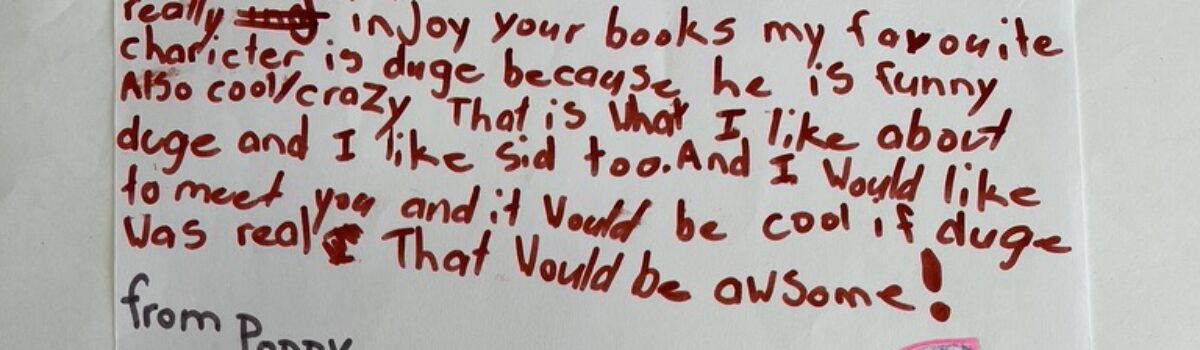 really injoy your books my favouite
charicter is duge because he is funny
Also cool/crazy That is what I like about
duge and I like sid too. And I Would like
to meet you and it Would be cool if duge
Was real That Would be awsome!
from Poppy